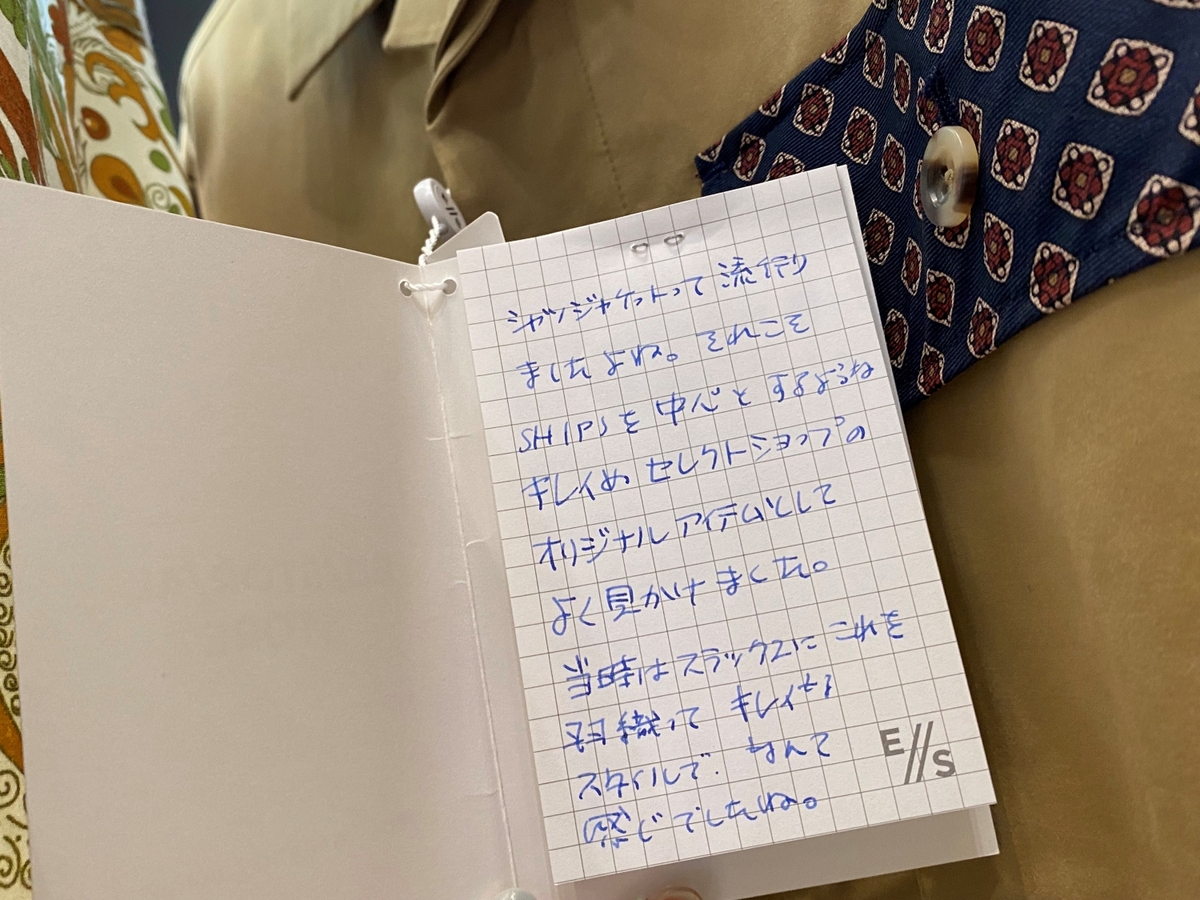 シャツジャケットって 流行り
ましたよね。それこそ
SHIPSを 中心と するような
キレイめ セレクトショップの
オリジナル アイテムとして
よく 見かけ ました。
当時は スラックスに これを
羽織って キレイな
スタイルで なんて
感じでしたね。
E//S